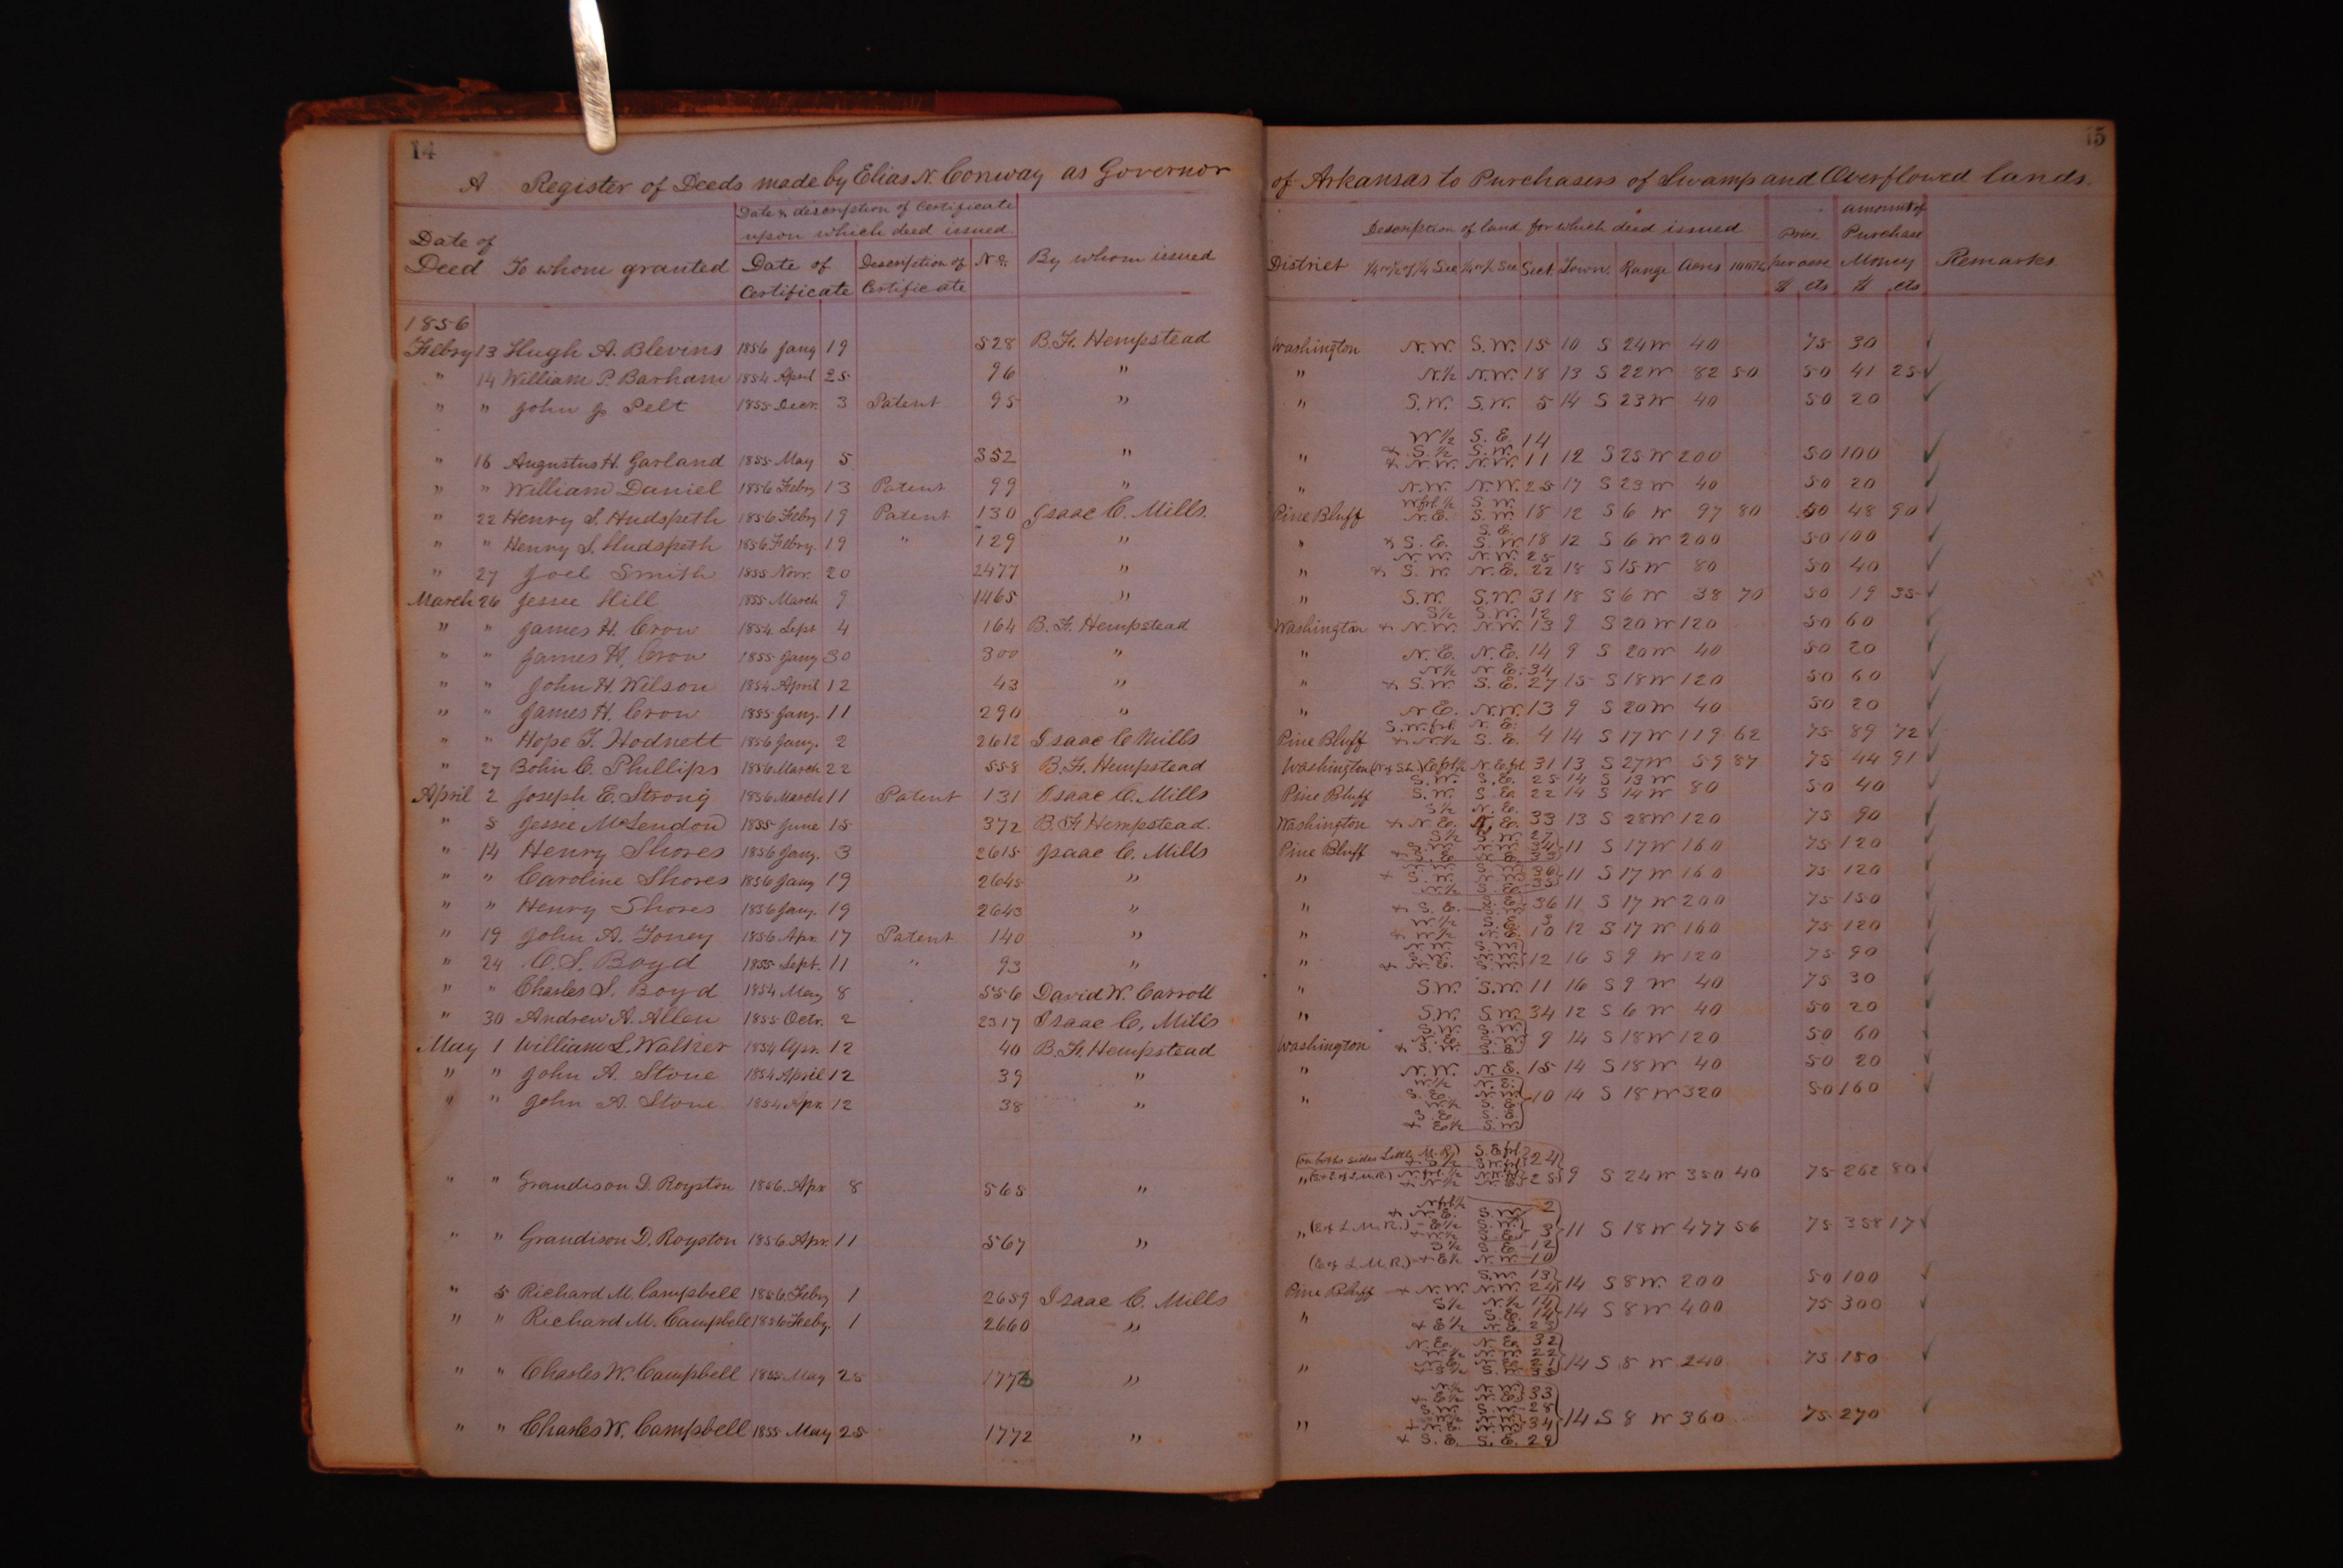 14
15
A Register of Deeds made by Elias N. Conway as Governor of Arkansas to Purchasers of Swamp and Overflowed lands.
Date & description of Certificate upon which deed issued.
Description of land for which deed issued
Date of Deed To whom granted Date of Certificate Description of Certificate No. By whom issued District ¼ or ½ of ¼ Sec ¼ or ½ Sec Sect. Town. Range Acres 100ths Price per acre $ cts amount of Purchase Money $ cts Remarks
1856
Febry 13 Hugh A. Blevins 1856 Jany 19 528 B. F. Hempstead Washington N.W. S.W. 15 10 S 24 W 40 75 30 ✓
" 14 William P. Barham 1854 April 25 96 " " N.½ N.W. 18 13 S 22 W 82 50 50 41 25 ✓
" " John J. Pelt 1855 Decr. 3 Patent 95 " " S.W. S.W. 5 14 S 23 W 40 50 20 ✓
W ½ S. E. 14
& S. ½ S.W.
" 16 Augustus H. Garland 1855 May 5 352 " " & N.W. N.W. 11 12 S 25 W 200 50 100 ✓
" " William Daniel 1856 Febry 13 Patent 99 " " N.W. N.W. 25 17 S 23 W 40 50 20 ✓
W frl. ½ S.W.
" 22 Henry S. Hudspeth 1856 Febry 19 Patent 130 Isaac C. Mills. Pine Bluff N.E. S.W. 18 12 S 6 W 97 80 50 48 90 ✓
S.E.
" " Henry S. Hudspeth 1856 Febry. 19 " 129 " " & S. E. S.W. 18 12 S 6 W 200 50 100 ✓
N.W. N.W. 25
" 27 Joel Smith 1855 Novr. 20 2477 " " & S. W. N.E. 22 18 S 15 W 80 50 40 ✓
March 26 Jesse Hill 1855 March 9 1465 " " S.W. S.W. 31 18 S 6 W 38 70 50 19 35 ✓
S½ S.W. 12
" " James H. Crow 1854 Sept 4 164 B. F. Hempstead Washington & N.W. N.W. 13 9 S 20 W 120 50 60 ✓
" " James H. Crow 1855 Jany 30 300 " " N.E. N.E. 14 9 S 20 W 40 50 20 ✓
N½ N.E. 34
" " John H. Wilson 1854 April 12 43 " " & S.W. S.E. 27 15 S 18 W 120 50 60 ✓
" " James H. Crow 1855 Jany. 11 290 " " N.E. N.W. 13 9 S 20 W 40 50 20 ✓
S.W. frl. N. E.
" " Hope T. Hodnett 1856 Jany. 2 2612 Isaac C Mills Pine Bluff & N.½ S. E. 4 14 S 17 W 119 62 75 89 72 ✓
" 27 Bolin C. Phillips 1856 March 22 558 B. F. Hempstead Washington E frl ½ N. E frl. 31 13 S 27 W 59 87 75 44 91 ✓
S.W. S.E. 25 14 S 13 W
April 2 Joseph E. Strong 1856 March 11 Patent 131 Isaac C. Mills Pine Bluff S.W. S.E. 22 14 S 14 W 80 50 40 ✓
S½ N.E.
" 5 Jesse McLendon 1855 June 15 372 B. F. Hempstead. Washington & N.E. N.E. 33 13 S 28 W 120 75 90 ✓
S½ S.W. 27
" 14 Henry Shores 1856 Jany. 3 2615 Isaac C. Mills Pine Bluff 11 S 17 W 160 75 120 ✓
" " Caroline Shores 1856 Jany 19 2645 " " 11 S 17 W 160 75 120 ✓
N.½ S.E.
" " Henry Shores 1856 Jany. 19 2643 " " & S. E. 36 11 S 17 W 200 75 150 ✓
W½ S.E. 3
" 19 John A. Toney 1856 Apr. 17 Patent 140 " " & W½ N.E. 10 12 S 17 W 160 75 120 ✓
" 24 C. S. Boyd 1855 Sept. 11 " 93 " " 12 16 S 9 W 120 75 90 ✓
" " Charles S. Boyd 1854 May 8 556 David W. Carroll " SW. S.W. 11 16 S 9 W 40 75 30 ✓
" 30 Andrew A. Allen 1855 Octr. 2 2317 Isaac C, Mills " S.W. S.W. 34 12 S 6 W 40 50 20 ✓
May 1 William L. Walker 1854 Apr. 12 40 B. F. Hempstead Washington & S.W. S.E. 9 14 S 18 W 120 50 60 ✓
" " John A. Stone 1854 April 12 39 " " N.W. N.E. 15 14 S 18 W 40 50 20 ✓
" " John A. Stone 1854 Apr. 12 38 " " 10 14 S 18 W 320 50 160 ✓
& E½ S.W.
(on both sides Little M. R.) S.E frl. 24
" " Grandison D. Royston 1856. Apr 8 565 " " 25 9 S 24 W 350 40 75 262 80 ✓
N frl ½ 2
& N.E. S.W.
" " Grandison D. Royston 1856. Apr. 11 567 " " (E of L.M.R.) E½ 3 11 S 18 W 477 56 75 358 17 ✓
S½ 12
(E of L.M.R.) & E½ N.W. 10
S.W. 13
" 5 Richard M. Campbell 1856 Febry 1 2659 Isaac C. Mills Pine Bluff & N.W. N.W. 24 14 S 8 W. 200 50 100 ✓
S½ N.½ 14
" " Richard M. Campbell 1856 Feby. 1 2660 " " S.E. 14 14 S 8 W 400 75 300 ✓
& E½ 23
N.E. N.E. 32
" " Charles W. Campbell 1855 May 25 1773 " " 14 S 8 W 240 75 180 ✓
" " Charles W. Campbell 1855 May 25 1772 " " 34 14 S 8 W 360 75 270 ✓
& S.E. S.E. 29